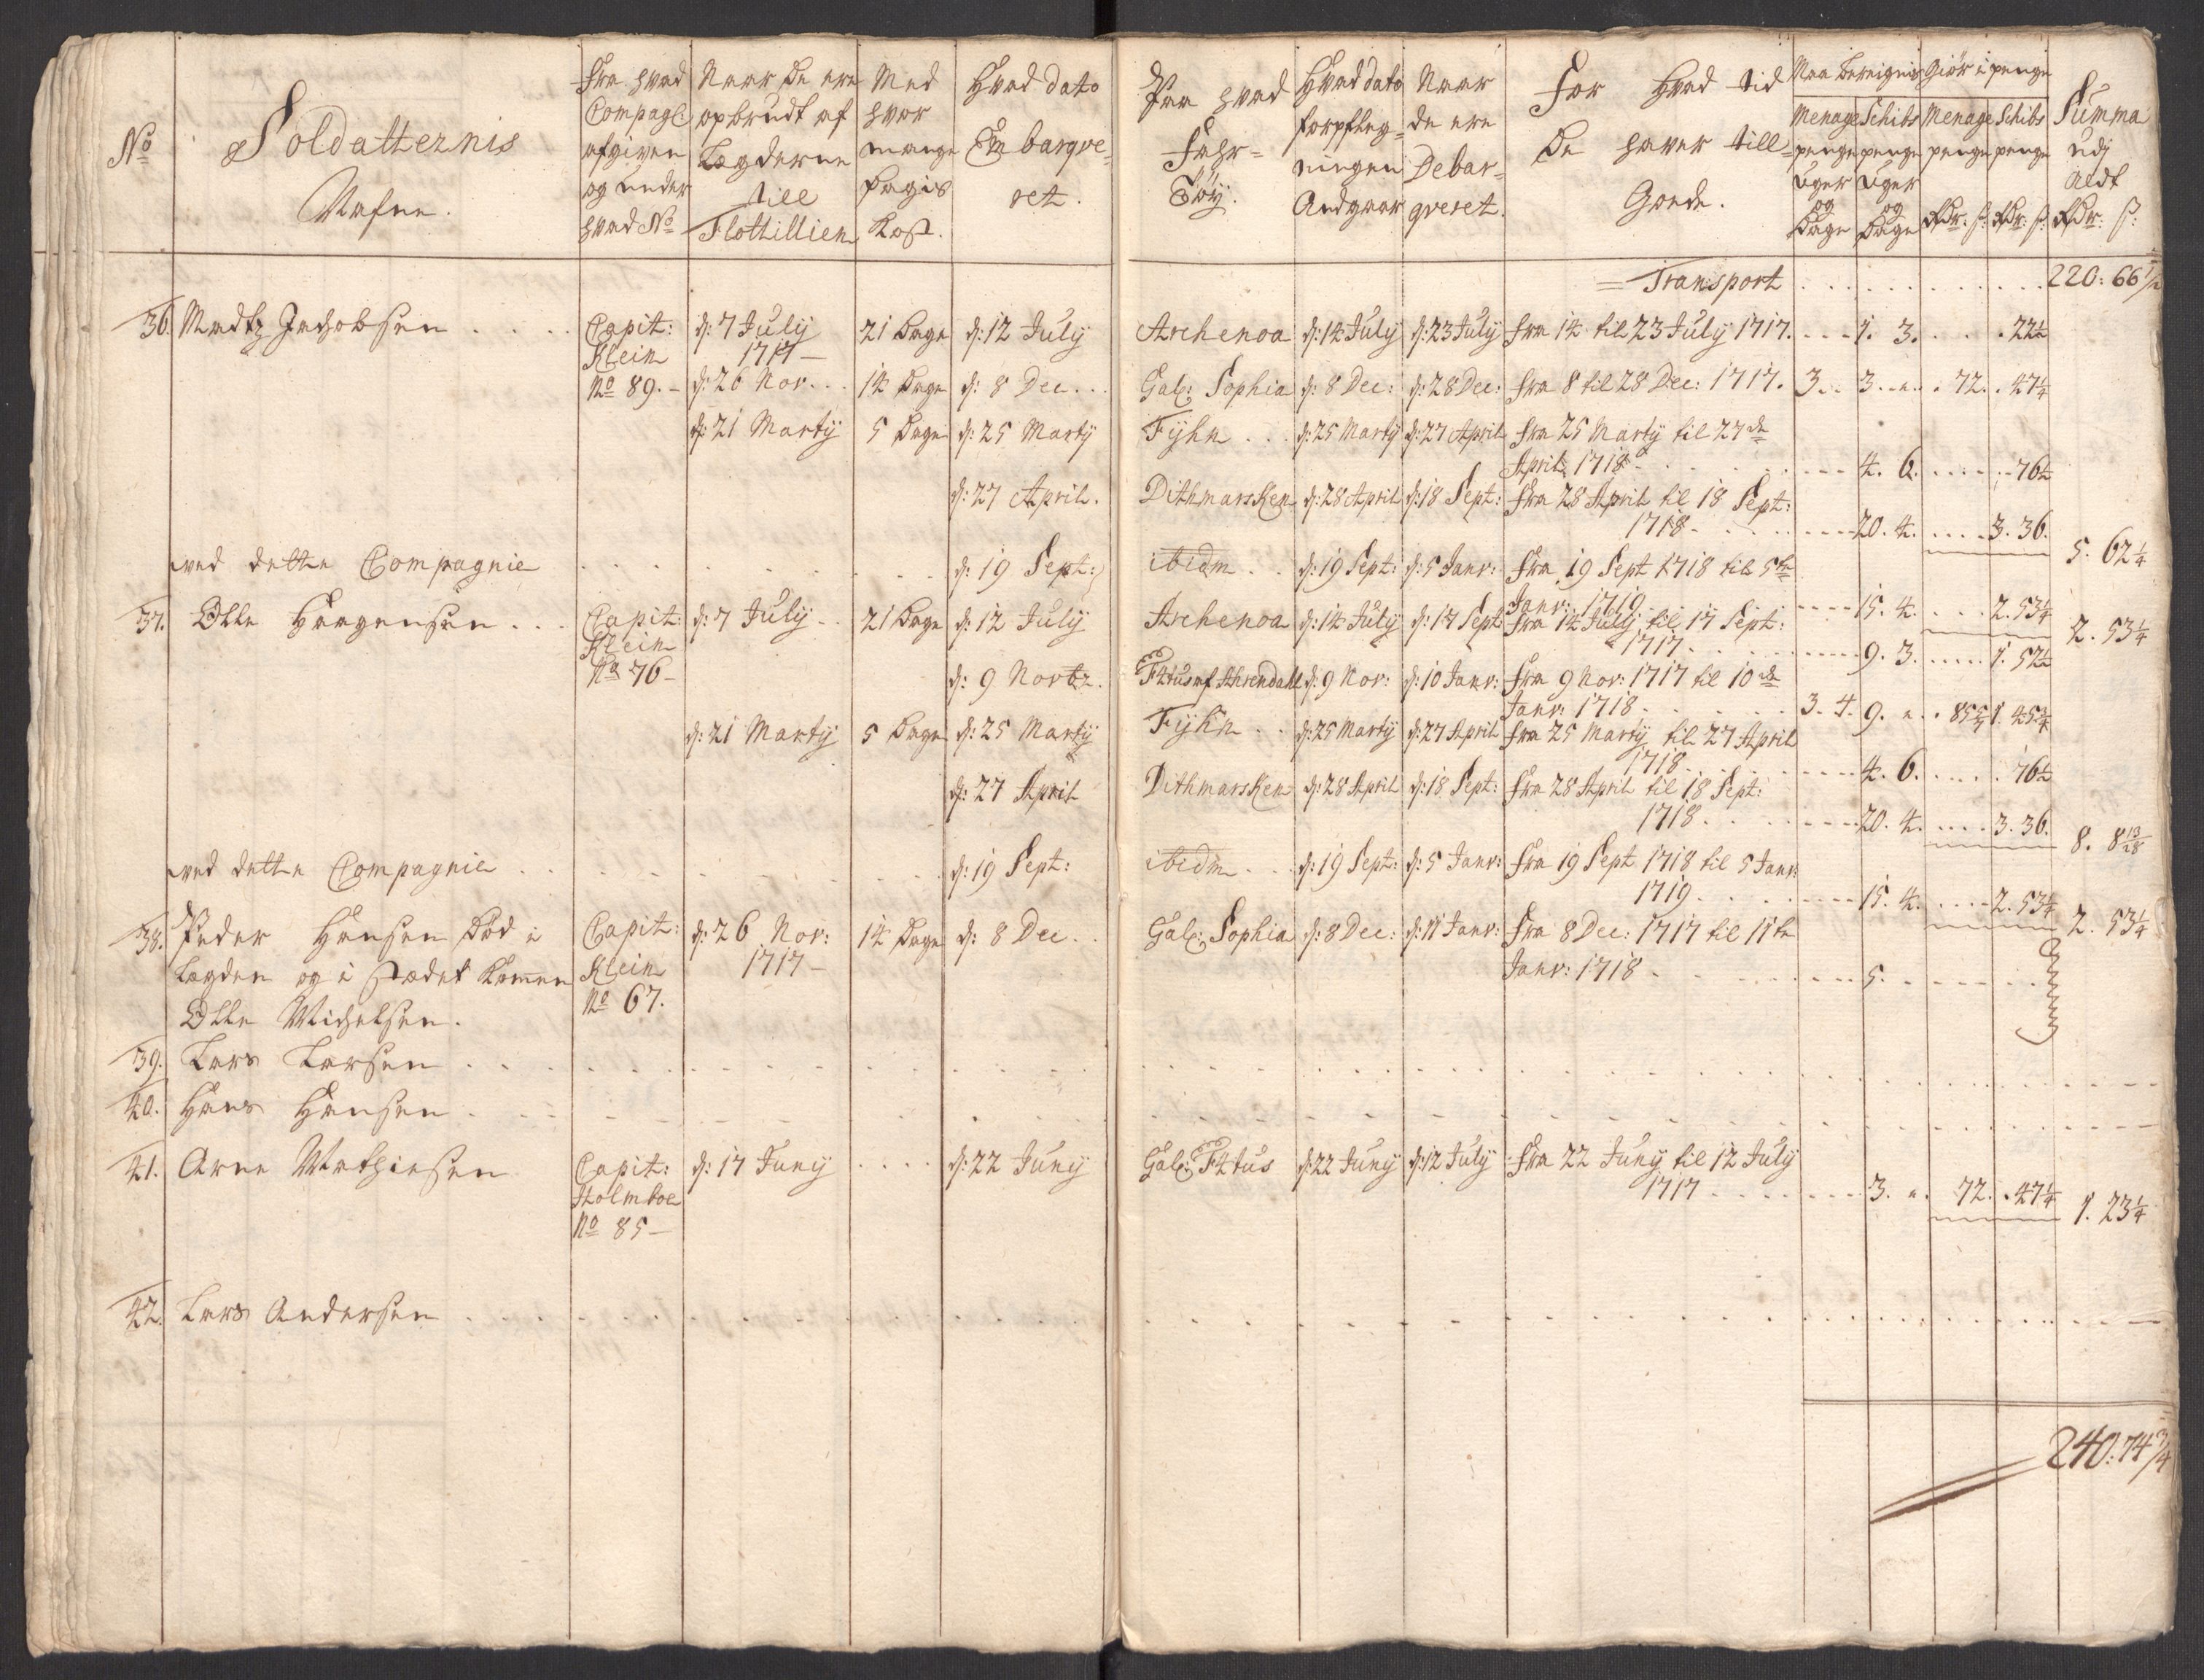 No
Soldatternis
Nafne.
Fra hvad
Compagl:
afgiven
og under
hvad No
Naar De ere
opbrudt af
Lægderne
till
Flottillien
Med
hvor
mange
Dagis
Kost.
Hvad dato
Embarqve-
ret.
Paa hvad
Fahr-
Töy.
Hvad dato
forpfleg-
ningen
Andgaar
Naar
de ere
Debar-
qveret.
For hvad tid
De haver till-
Gode.
Maa bereignis
Giör i penge
Menage
penge
Uger
og
Dage
Schibs
penge
Uger
og
Dage
Menage
penge
Rdr: ß:
Schibs
penge
Rdr: ß:
Summa
udj
aldt
Rdr: ß:
Transport . . . . . . . . . . . 220: 66 1/2
36. Madtz Jachobsen . . . . Capit: d: 7 July 21 Dage d: 12 July Archenoa d: 14 July d: 23 July fra 14 til 23 July 1717. - - - 1. 3. . . . . 22 1/2
Klein 1717 -
No 89. - d: 26 Nor. . . 14 Dage d: 8 Dec. . . Gal: Sophia d: 8 Dec: d: 28 Dec: fra 8 til 28 Dec: 1717. 3. . 3. - " . . 72. . 47 1/4
d: 21 Marty 5 Dage d: 25 Marty Fyhn . . . d: 25 Marty d: 27 April fra 25 Marty til 27 de
April 1718 - . . . . - - - 4. 6. . . . . 76 1/2
d: 27 April. Dithmarsken d: 28 April d: 18 Sept: fra 28 April til 18 Sept:
1718 - . . . . - - - 20. 4. . . . . 3. 36.
5. 62 1/4
ved dette Compagnie . . . . . . . . d: 19 Sept: ibidm . . d: 19 Sept: d: 5 Janr: fra 19 Sept 1718 til 5te
Janr: 1719 . . . - - - 15. 4. . . . 2. 53 1/4
2. 53 1/4
37. Olle Haagensen . . . Capit: d: 7 July . . 21 Dage d: 12 July Archenoa d: 14 July d: 17 Sept fra 14 July til 17 Sept:
Klein 1717. . . . . . - - - 9. 3. . . . . 1. 52 1/2
No 76 - d: 9 Norbr. Fktus af Ahrendahl d: 9 Nor: d: 10 Janr: fra 9 Nor: 1717 til 10 de
Janr: 1718 - . . . . . 3. 4. 9. " . . 85 5/7 1. 45 3/4
d: 21 Marty 5 Dage d: 25 Marty Fyhn . . d: 25 Marty d: 27 April fra 25 Marty til 27 April
1718. . . . . - - - 4. 6. . . . . . 76 1/2
d: 27 April Dithmarsken d: 28 April d: 18 Sept: fra 28 April til 18 Sept:
1718 . . . . - - - 20. 4. . . . . 3. 36.
8. 8 13/28
ved dette Compagnie . . . . . . . . d: 19 Sept: ibidm . . . d: 19 Sept: d: 5 Janr: fra 19 Sept 1718 til 5 Janr:
1719. . . . . - - - 15. 4. . . . . 2. 53 1/4
2. 53 1/4
38. Peder Hansen Död i Capit: d: 26 Nor: 14 Dage d: 8 Dec. . Gal: Sophia d: 8 Dec: d: 11 Janr: fra 8 Dec: 1717 til 11te
Lægden og i Stædet kommen Klein 1717 - Janr: 1718 - . . . . . . . 5. . . . . .
Olle Michelsen. No 67.
39. Lars Larsen . . . . . . . . . . . . .
40. Hans Hansen . . . . . . . . . . . . .
41. Arne Mathiesen Capit: d: 17 Juny . . . . d: 22 Juny Gal: Fktus d: 22 Juny d: 12 July fra 22 Juny til 12 July
Holmboe 1717 . . . . . . . 3. ". 72. . 47 1/4
No 85 - 1. 23 1/4
42. Lars Andersen . . . . . . . . . . . . .
240: 74 3/4